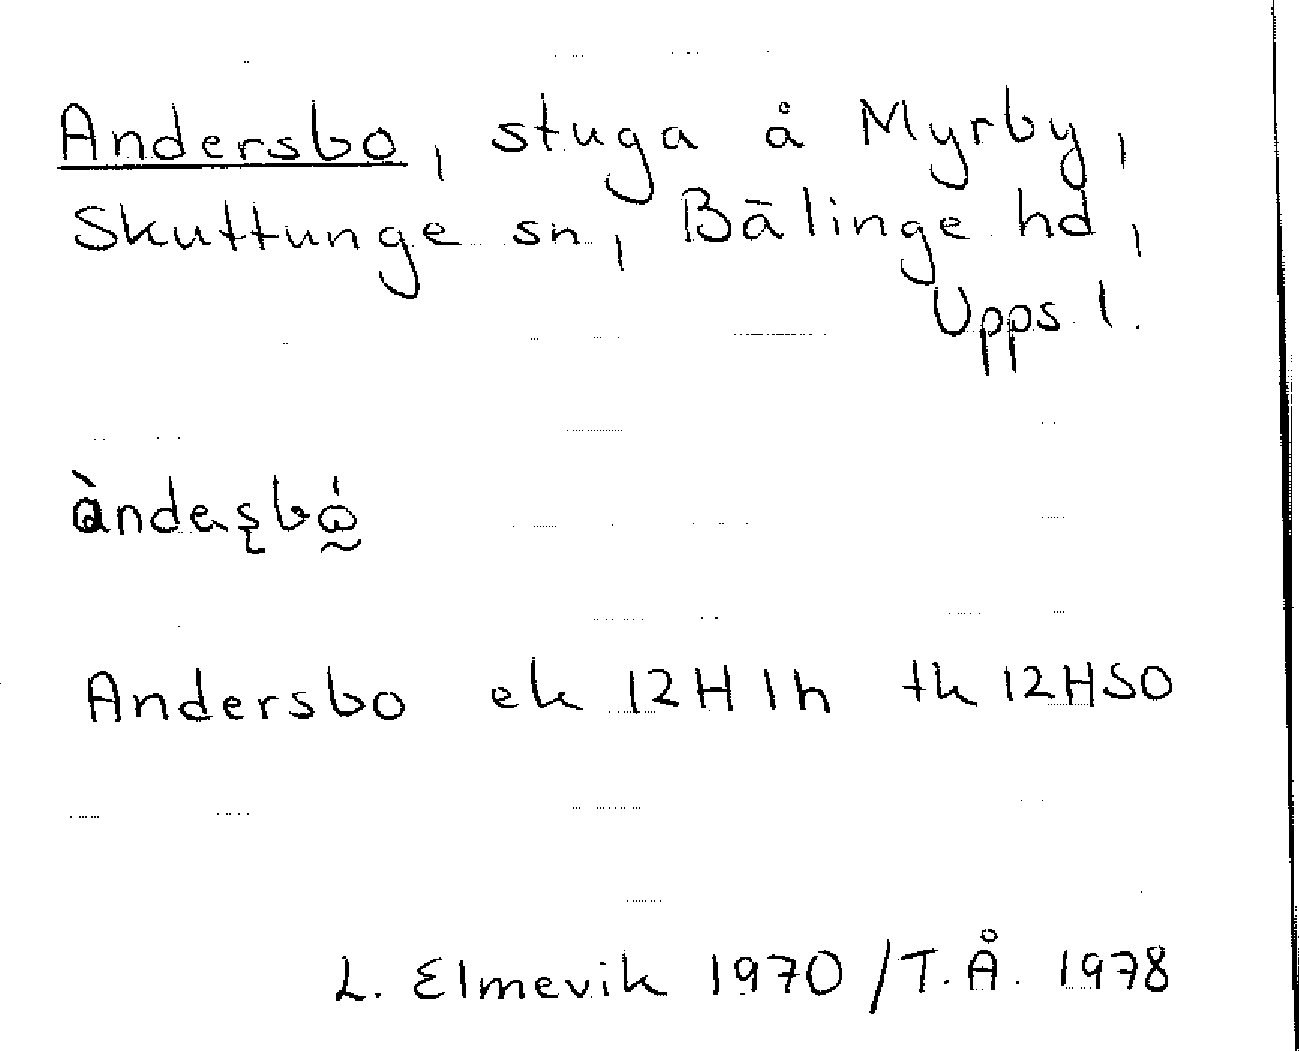 Andersbo, stuga å Myrby,
Skuttunge sn, Bälinge hd,
Upps l.
Andersbo ek 12H1h tk 12HSO
L. Elmevik 1970 /T.Å. 1978